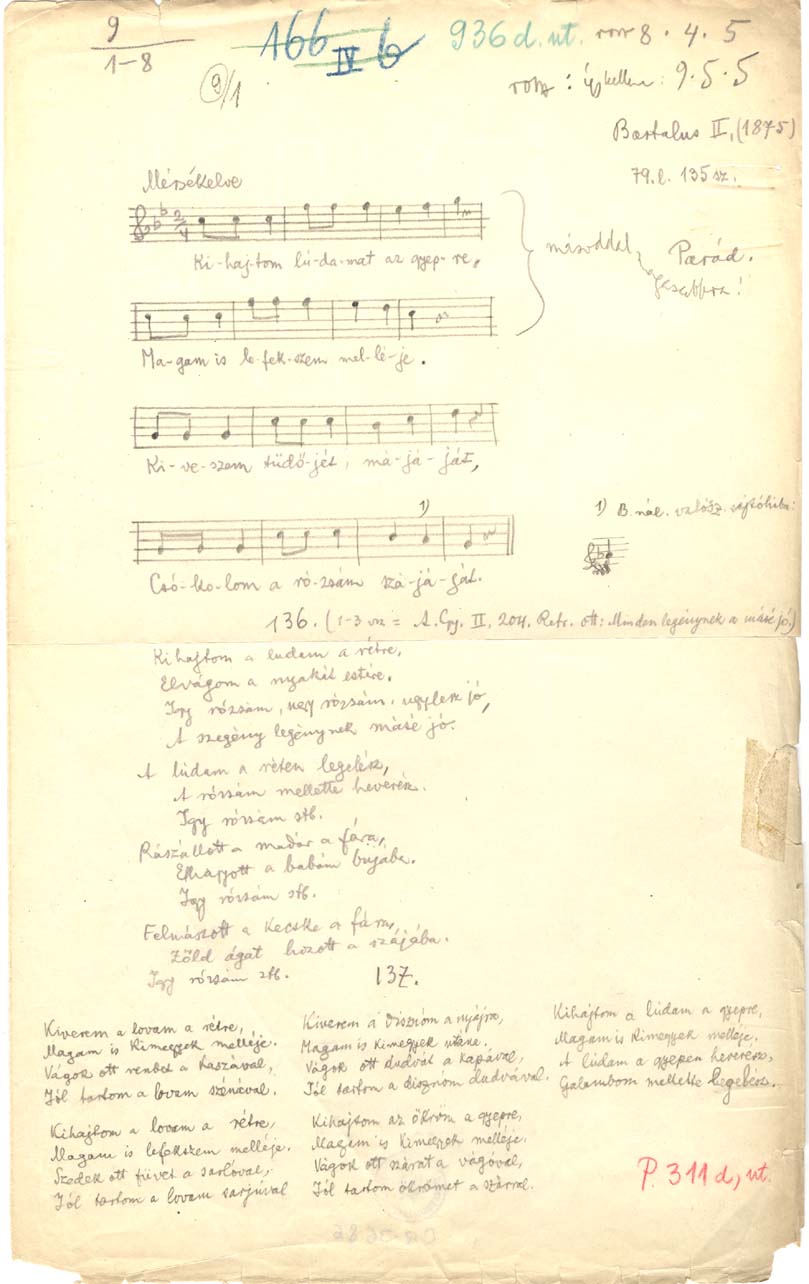 9
1-8
166
IV b
936 d. ut.
8 . 4 . 5
9/1
9. 5. 5
Bartalus II, (1875)
79. l. 135 sz.
Mérsékelve
Ki-haj-tom lú-da-mat az gyep-re,
másoddal
Parád.
Ma-gam is le-fek-szem mel-lé-je.
Ki-ve-szem tüdő-jét, má-já-ját,
1)
1) B. nál valósz. sajtóhiba:
Csó-ko-lom a ró-zsám szá-já-ját.
136. (1-3 vsz = A. Gy. II, 204. Refr. ott: Minden legénynek a másé jó.)
Kihajtom a ludam a rétre,
Elvágom a nyakát estére.
Igy rózsám, ugy rózsám, ugylesz jó,
A szegény legénynek másé jó.
A lúdam a réten legelész,
A rózsám mellette heverész.
Igy rózsám stb.
Rászállott a madár a fára,
Elhagyott a babám bujába.
Igy rózsám stb.
Felmászott a kecske a fára,
Zöld ágat hozott a szájába.
Igy rózsám stb.
137.
Kiverem a lovam a rétre,
Magam is kimegyek melléje.
Vágok ott rendet a kaszával,
Jól tartom a lovam szénával.
Kihajtom a lovam a rétre,
Magam is lefekszem melléje.
Szedek ott füvet a sarlóval,
Jól tartom a lovam sarjúval
Kiverem a disznóm a nyájra,
Magam is kimegyek utána.
Vágok ott dudvát a kapával,
Jól tartom a disznóm dudvával.
Kihajtom az ökröm a gyepre,
Magam is kimegyek melléje.
Vágok ott szárat a vágóval,
Jól tartom ökrömet a szárral.
Kihajtom a lúdam a gyepre,
Magam is kimegyek melléje.
A lúdam a gyepen heverész,
Galambom mellette legelész.
P. 311 d, ut.